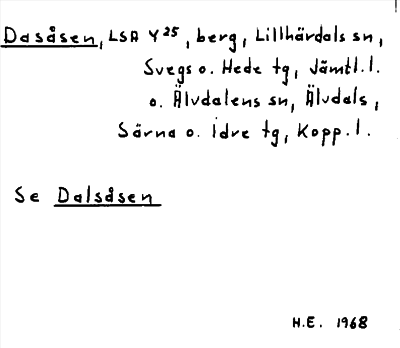 Dasåsen, LSA Y25, berg, Lillhärdals sn,
Svegs o. Hede tg, Jämtl. l.
o. Älvdalens sn, Älvdals,
Särna o. Idre tg, Kopp. l.
Se Dalsåsen
H.E. 1968